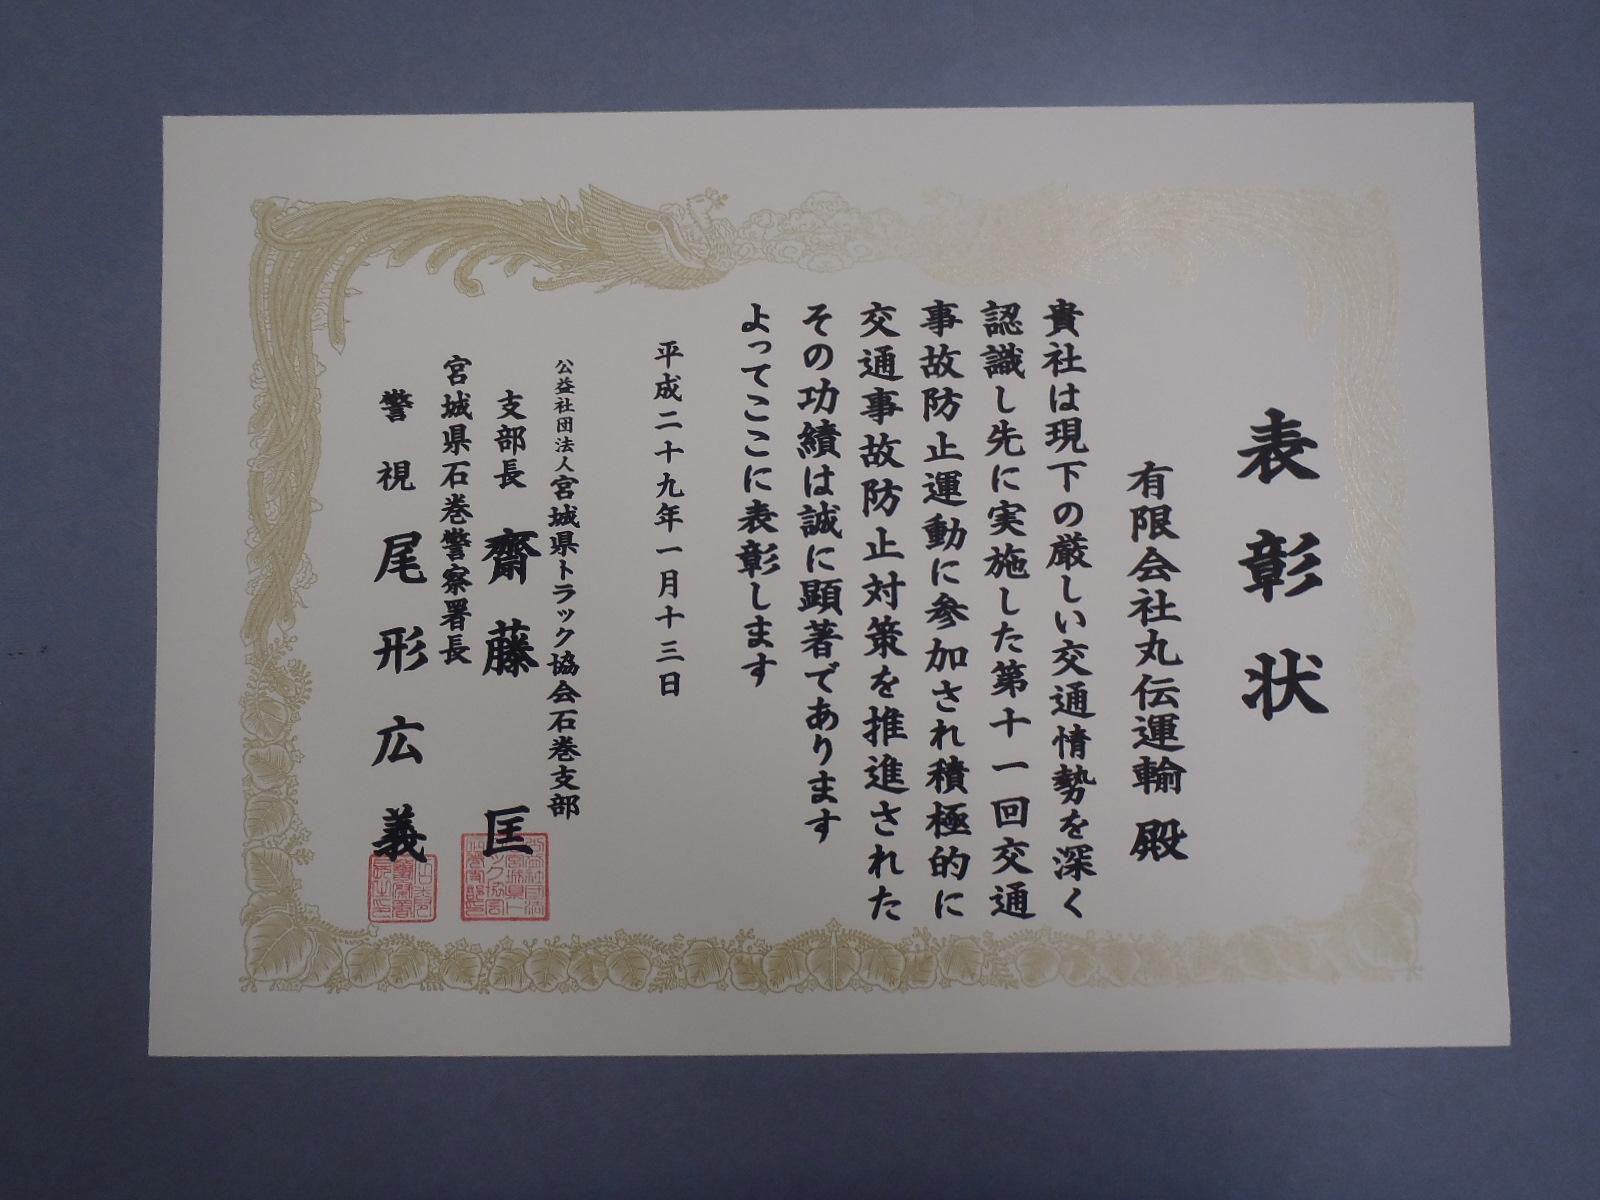 表彰状
有限会社丸伝運輸 殿
貴社は現下の厳しい交通情勢を深く
認識し先に実施した第十一回交通
事故防止運動に参加され積極的に
交通事故防止対策を推進された
その功績は誠に顕著であります
よってここに表彰します
平成二十九年一月十三日
公益社団法人宮城県トラック協会石巻支部
支部長 齋藤 匡
宮城県石巻警察署長
警視 尾形広義